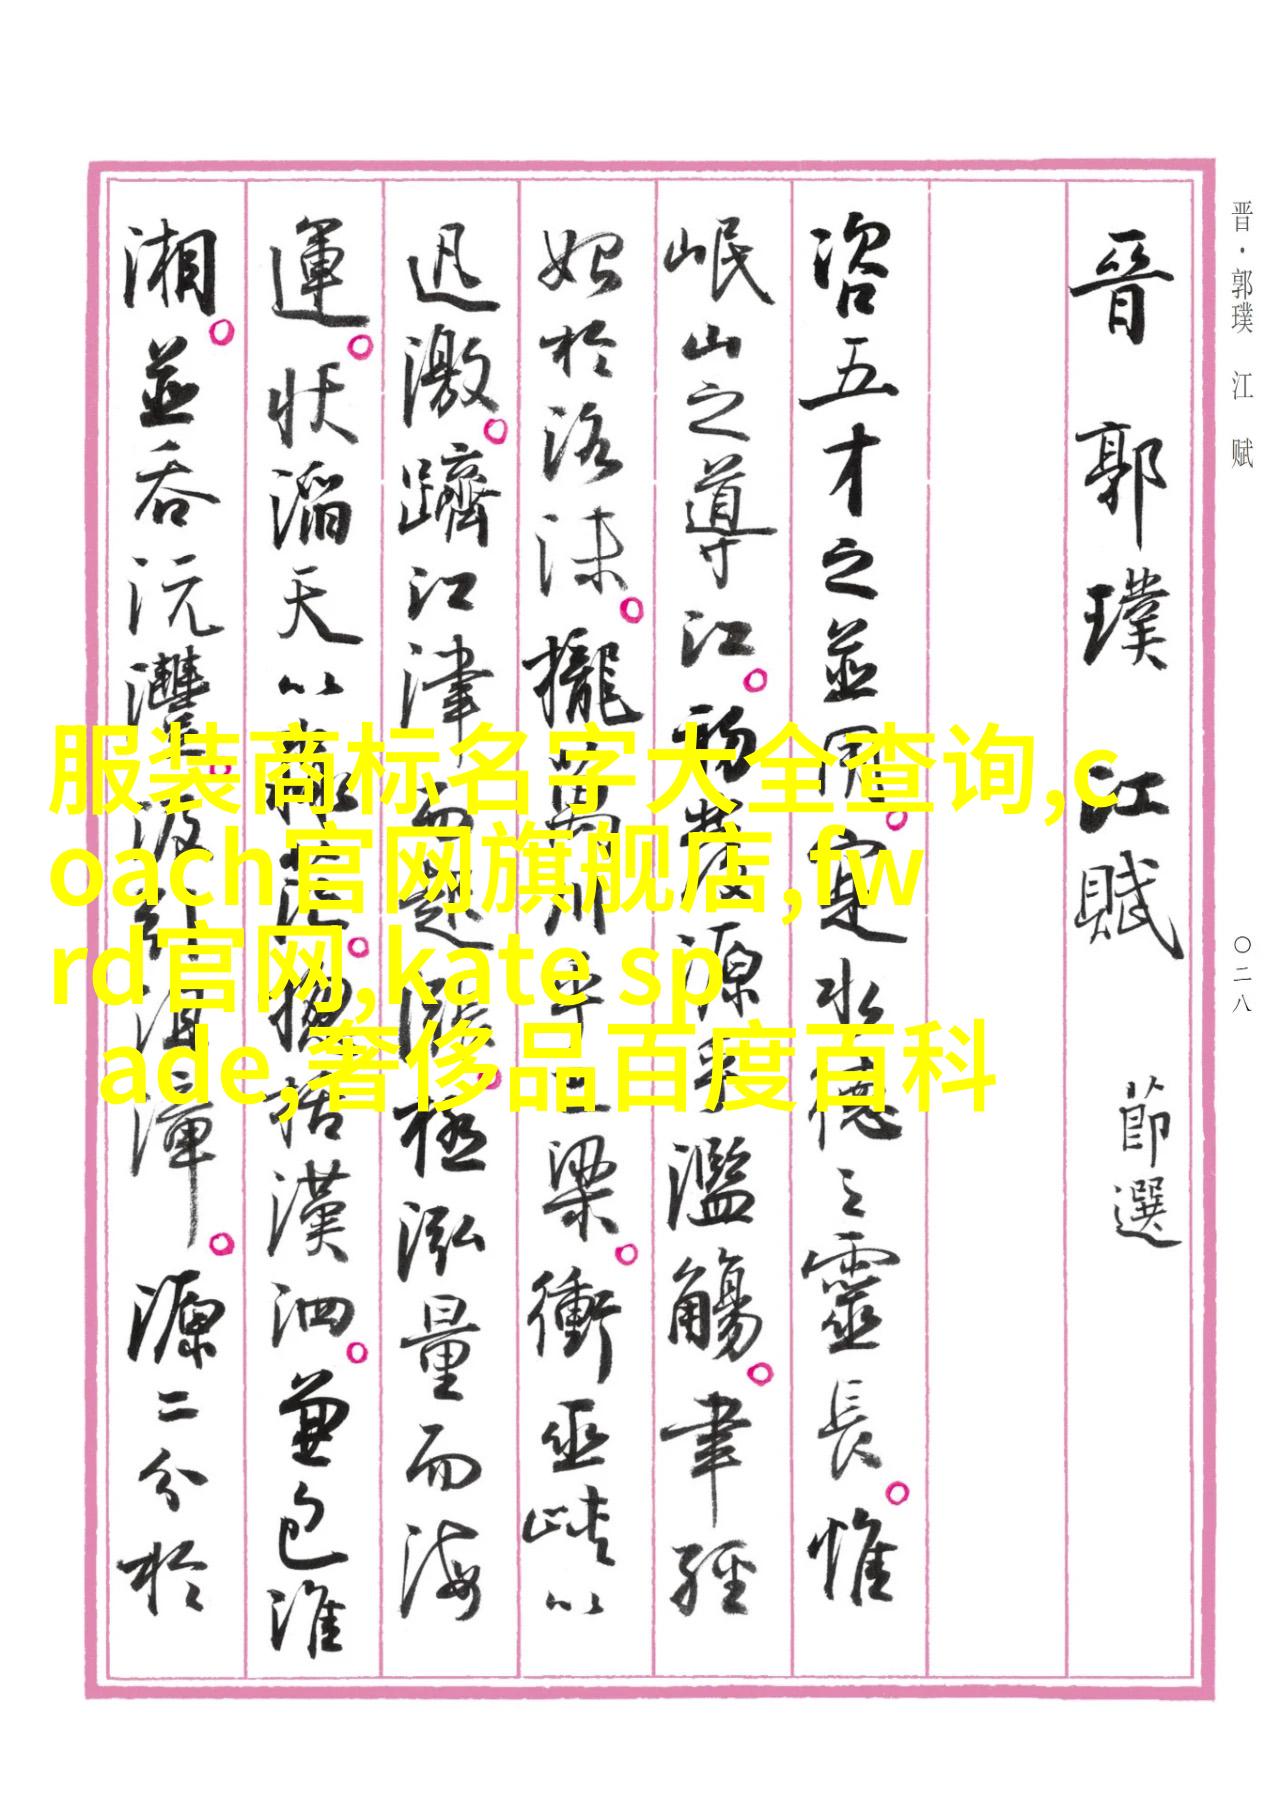 晋·郭璞 江 赋
〇二八
晉 郭 璞 江 賦 節選
咨五才之並用。寔水德之靈長。惟
岷山之導江。初發源乎濫觴。聿經
始於洛沬。攏萬川乎巴梁。衝巫峽以
迅激。躋江津而起漲。極泓量而海
運。狀滔天以淼茫。摠括漢泗。兼包淮
湘。並吞沅澧。汲引沮漳。源二分於
服装商标名字大全查询,c
oach官网旗舰店,fw
rd官网,kate sp
ade,奢侈品百度百科